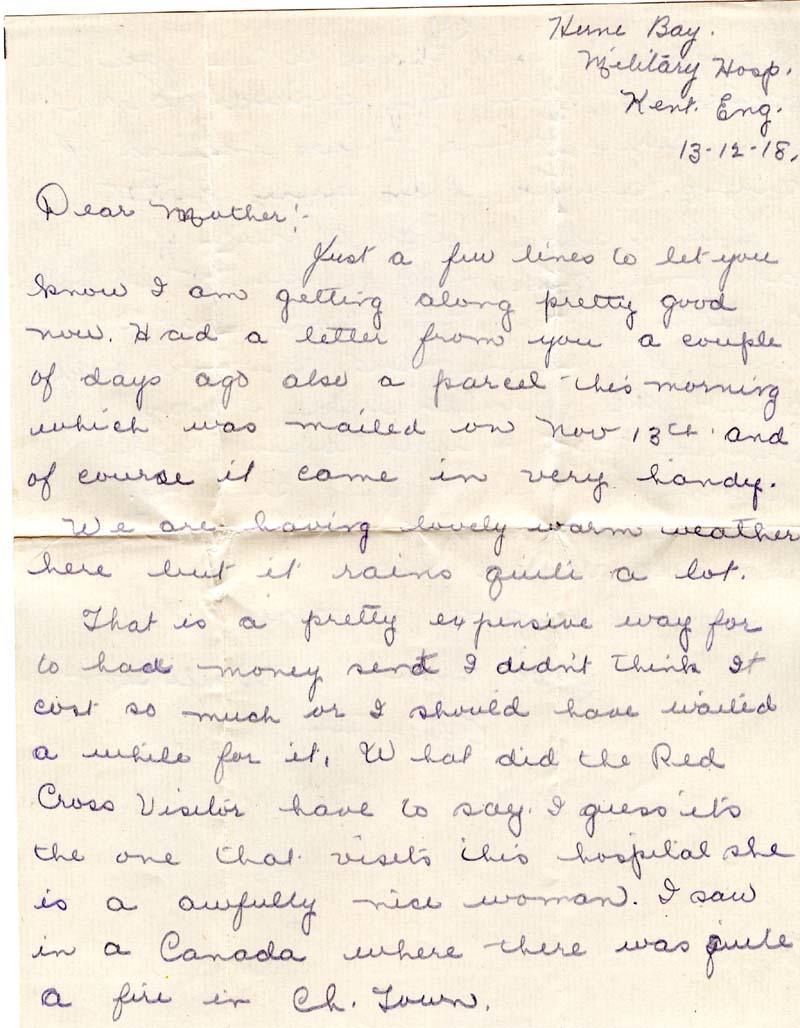 Herne Bay.
Military Hosp.
Kent. Eng.
13-12-18.
Dear Mother:-
Just a few lines to let you
know I am getting along pretty good
now. Had a letter from you a couple
of days ago also a parcel this morning
which was mailed on Nov 13th and
of course it came in very handy.
We are having lovely warm weather
here but it rains quite a lot.
That is a pretty expensive way for
to had money sent I didn't think it
cost so much or I should have waited
a while for it. What did the Red
Cross Visitor have to say. I guess its
the one that visits this hospital she
is a awfully nice woman. I saw
in a Canada where there was quite
a fire in Ch. Town.